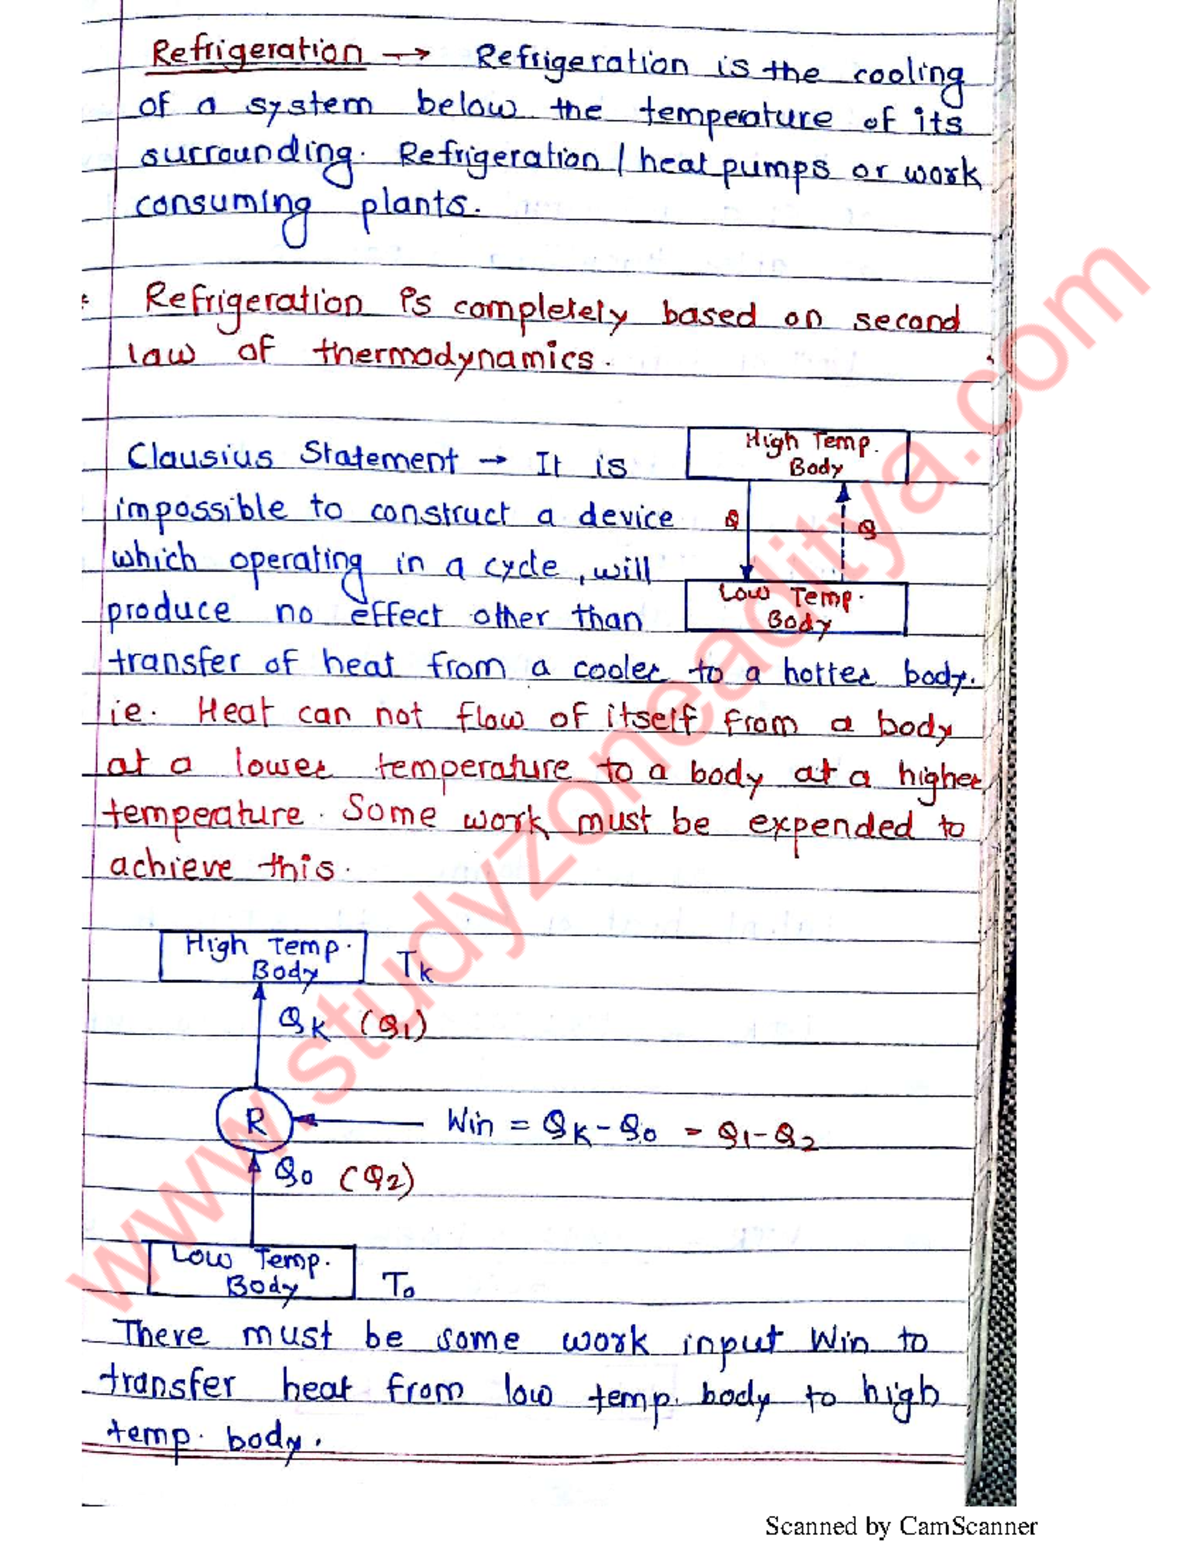 Refrigeration → Refrigeration is the cooling
of a system below the temperature of its
surrounding. Refrigeration / heat pumps or work
consuming plants.
Refrigeration is completely based on second
law of thermodynamics.
Clausius Statement → It is
impossible to construct a device
which operating in a cycle, will
produce no effect other than
transfer of heat from a cooler to a hotter body.
High Temp.
Body
Q Q
Low Temp.
Body
ie. Heat can not flow of itself from a body
at a lower temperature to a body at a higher
temperature. Some work must be expended to
achieve this.
High Temp.
Body
Tk
Qk (Q1)
R
Win = Qk - Qo = Q1 - Q2
Qo (Q2)
Low Temp.
Body
To
There must be some work input Win to
transfer heat from low temp. body to high
temp. body.
www.studyzoneaditya.com
Scanned by CamScanner